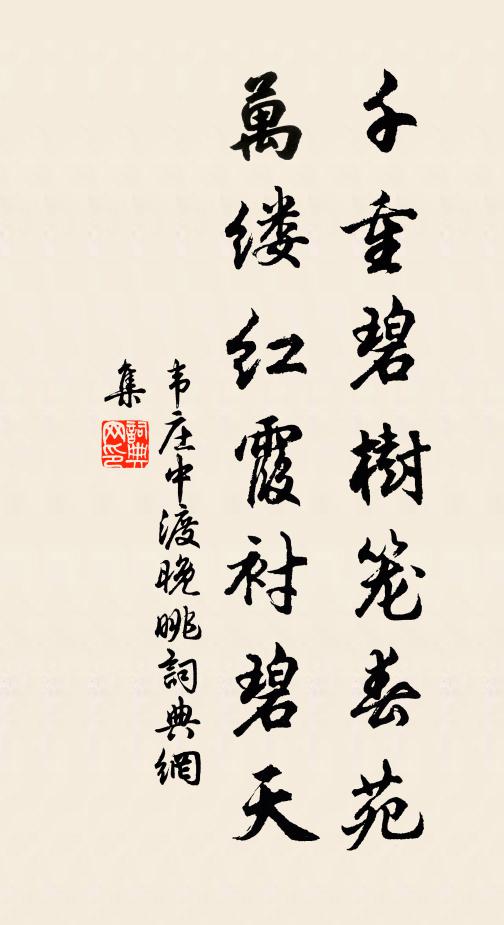 千重碧樹笼春苑
萬缕红霞衬碧天
韦庄中渡晚眺詞典網
集
詞典网印